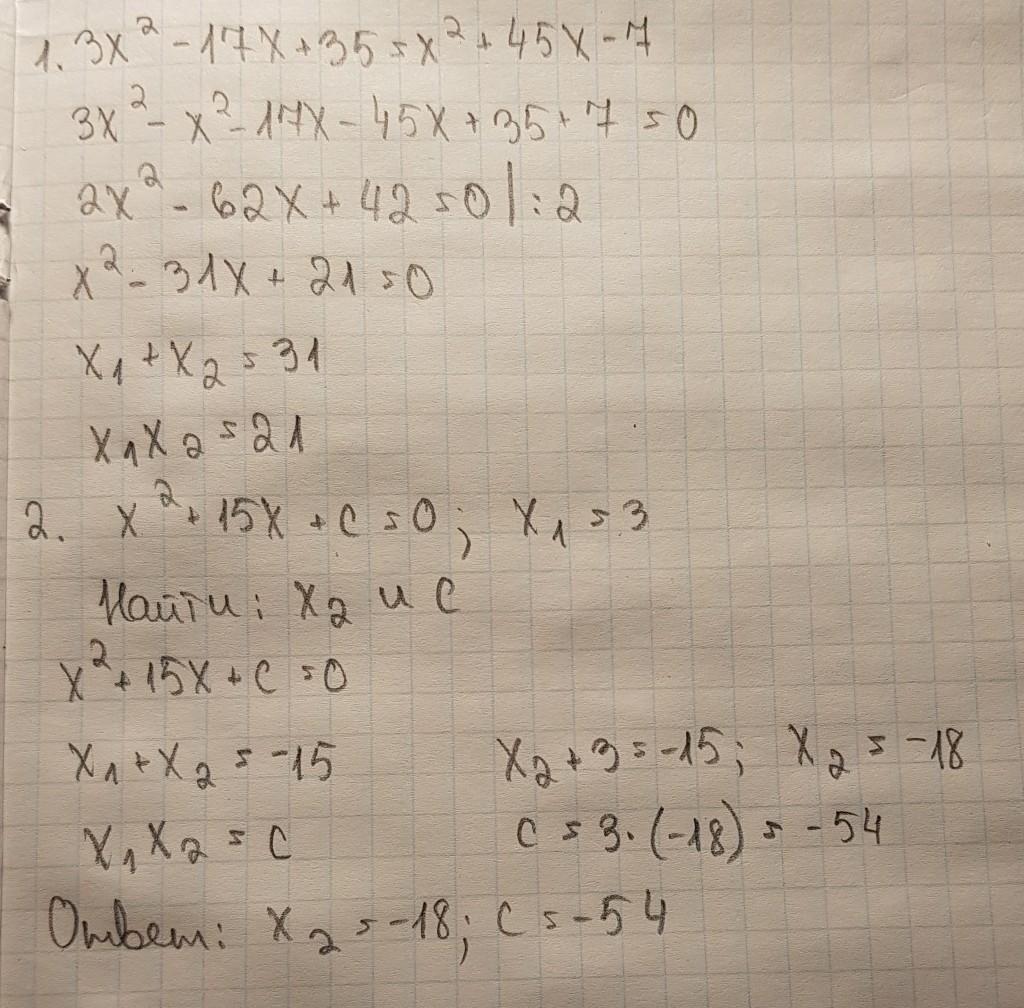 1. 3x² - 17x + 35 = x² + 45x - 7
3x² - x² - 17x - 45x + 35 + 7 = 0
2x² - 62x + 42 = 0 | : 2
x² - 31x + 21 = 0
x₁ + x₂ = 31
x₁x₂ = 21
2. x² + 15x + c = 0; x₁ = 3
Найти: x₂ и c
x² + 15x + c = 0
x₁ + x₂ = -15 x₂ + 3 = -15; x₂ = -18
x₁x₂ = c c = 3·(-18) = -54
Ответ: x₂ = -18; c = -54